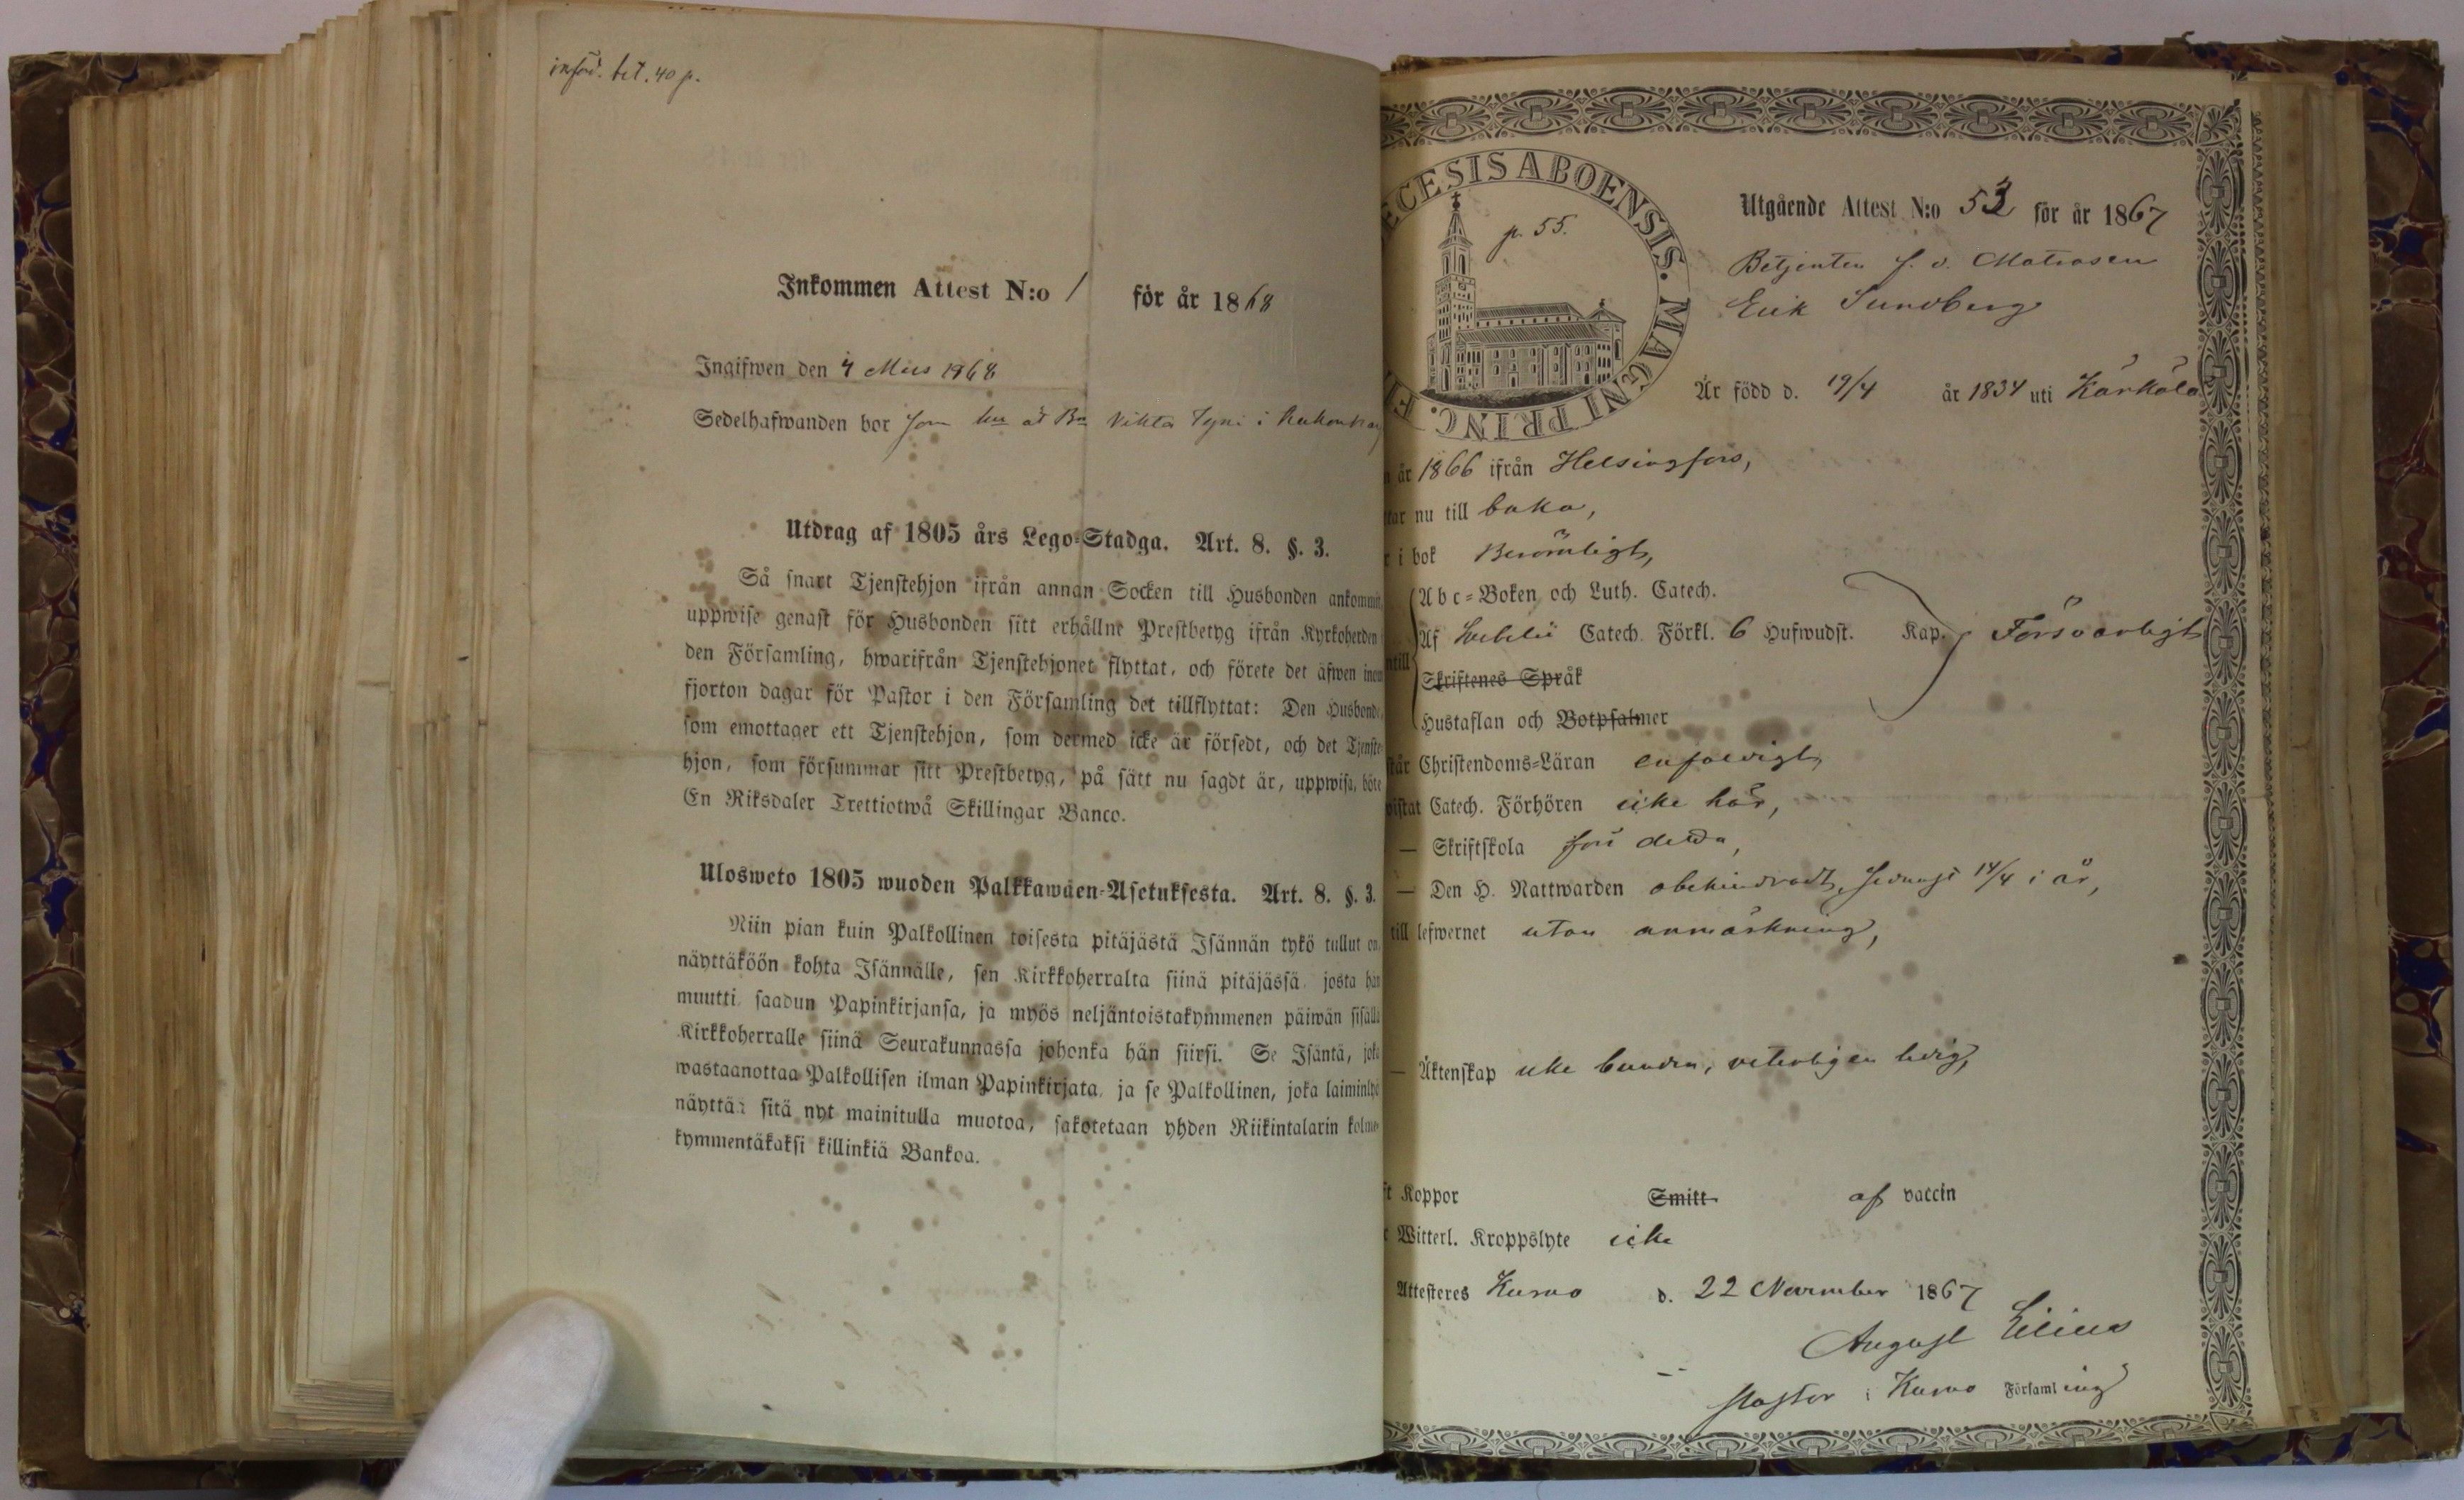 införd. bet. 40 p.
Inkommen Attest N:o 1 för år 1868
Ingifwen den 4 Mars 1868
Sedelhafwanden bor som hu åt Bn Viktor Tyni i
Utdrag af 1805 års Lego-Stadga. Art. 8. §. 3.
Så snart Tjenstehjon ifrån annan Socken till Husbonden ankommit,
uppwise genast för Husbonden sitt erhållne Prestbetyg ifrån Kyrkoherden i
den Församling, hwarifrån Tjenstehjonet flyttat, och förete det äfwen inom
fjorton dagar för Pastor i den Församling det tillflyttat: Den Husbonde,
som emottager ett Tjenstehjon, som dermed icke är försedt, och det Tjenste-
hjon, som försummar sitt Prestbetyg, på sätt nu sagdt är, uppwisa, böte
En Riksdaler Trettiotwå Skillingar Banco.
Ulosweto 1805 wuoden Palkkawäen-Asetuksesta. Art. 8. §. 3.
Niin pian kuin Palkollinen toisesta pitäjästä Isännän tykö tullut on,
näyttäköön kohta Isännälle, sen Kirkkoherralta siinä pitäjässä, josta hän
muutti, saadun Papinkirjansa, ja myös neljäntoistakymmenen päiwän sisällä
Kirkkoherralle siinä Seurakunnassa johonka hän siirsi. Se Isäntä, joka
wastaanottaa Palkollisen ilman Papinkirjata, ja se Palkollinen, joka laiminlyö
näyttää sitä nyt mainitulla muotoa, sakotetaan yhden Riikintalarin kolme-
kymmentäkaksi killinkiä Bankoa.
ECESIS ABOENSIS. MAGNI PRINC. FI
p. 55.
Utgående Attest N:o 53 för år 1867
Betjenten f. d. Matrosen
Erik Sundberg
Är född d. 19/4 år 1834 uti Kärkölä
år 1866 ifrån Helsingfors,
tar nu till baka,
i bok Berömligt,
Abc-Boken och Luth. Catech.
Af Svebelii Catech. Förkl. 6 Hufwudst. Kap. Försvarligt
ntill
Skriftenes Språk
Hustaflan och Botpsalmer
står Christendoms-Läran enfaldigt,
wistat Catech. Förhören icke här,
— Skriftskola för detta,
— Den H. Nattwarden obehindradt, sednast 14/4 i år,
till lefwernet utan anmärkning,
— Äktenskap icke bunden, veterligen ledig,
ft Koppor Smitt af vaccin
Witterl. Kroppslyte icke
Attesteres Kumo d. 22 November 1867
August Lilius
Pastor i Kumo Församling